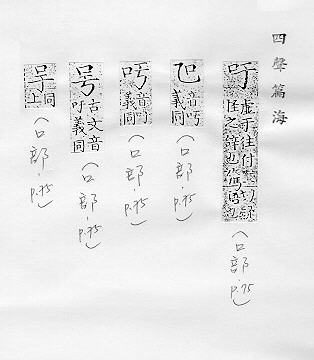 四聲篇海
吁 虛于往付
怪之辭也
（口部．p.75）
音吁
義同
（口部．p.75）
音吁
義同
（口部．p.75）
号 古文音
吁義同
（口部．p.75）
同
上
（口部．p.75）